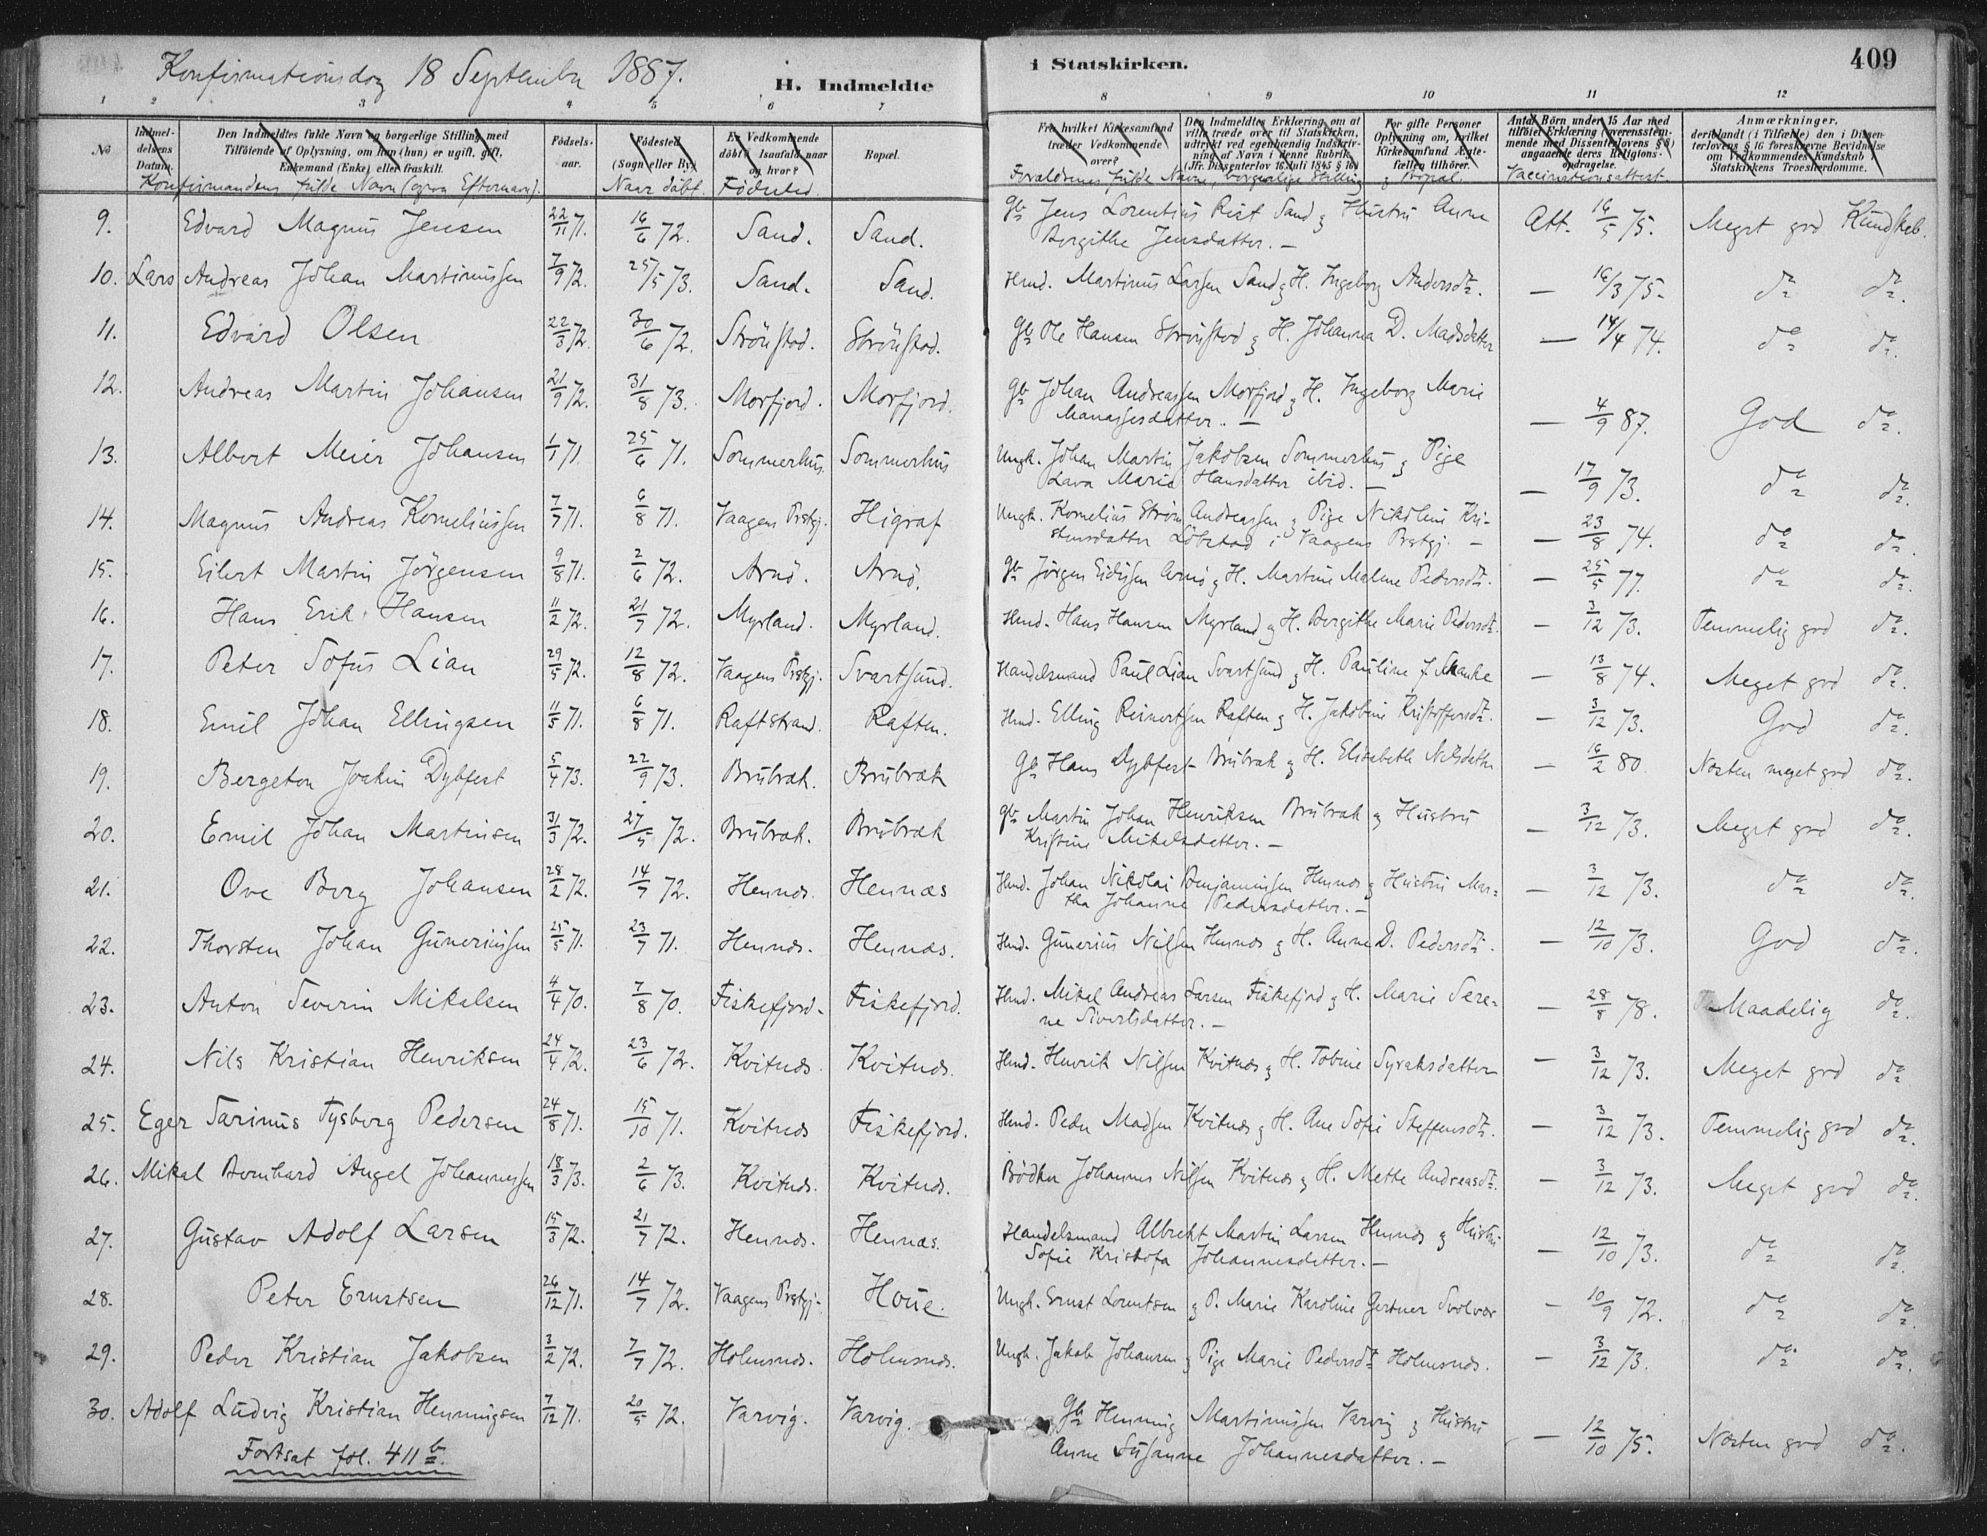 Konfirmationsdag 18 September 1887.
H. Indmeldte i Statskirken. 409
1 2 3 4 5 6 7 8 9 10 11 12
No
Indmeldelsens Datum.
Den Indmeldtes fulde Navn og borgerlige Stilling med Tilføiende af Oplysning, om han (hun) er ugift, gift, Enkemand (Enke) eller fraskilt.
Fødselsaar.
Fødested (Sogn eller By).
Er Vedkommende døbt? Isaafald naar og hvor?
Bopæl.
Fra hvilket Kirkesamfund træder Vedkommende over?
Den Indmeldtes Erklæring om at ville træde over til Statskirken, udtrykt ved egenhændig Indskrivning af Navn i denne Rubrik. (Jfr. Dissenterlov 16 Juli 1845 § 16)
For gifte Personer Oplysning om, hvilket Kirkesamfund Ægtefællen tilhører.
Antal Børn under 15 Aar med tilføiet Erklæring (overensstemmende med Dissenterlovens § 8) angaaende deres Religionsopdragelse.
Anmærkninger, deriblandt (i Tilfælde) den i Dissenterlovens § 16 foreskrevne Bevidnelse om Vedkommendes Kundskab i Statskirkens Troeslærdomme.
Konfirmandens fulde Navn (ogsaa Efternavn). Naar døbt. Fødested Forældrenes fulde Navne, borgerlige Stilling og Bopæl. Vaccinationsattest.
9. Edvard Magnus Jensen 22/11 71. 16/6 72. Sand. Sand. Gb Jens Lorentius Rist Sand og Hustru Anne Bergithe Jensdatter. — Att. 16/5 75. Meget god Kundskab.
10. Lars Andreas Johan Martinussen 7/9 72. 25/5 73. Sand. Sand. Hmd. Martinus Larsen Sand og H. Ingeborg Andersdtr. — 16/3 75. do do.
11. Edvard Olsen 22/3 72. 30/6 72. Strønstad. Strønstad. Gb Ole Hansen Strønstad og H. Johanna D. Madsdatter — 14/4 74. do do.
12. Andreas Martin Johansen 21/9 72. 31/8 73. Morfjord. Morfjord. Gb Johan Andreassen Morfjord og H. Ingeborg Marie Manassesdatter. — — 4/9 87. God do.
13. Albert Meier Johansen 1/1 71. 25/6 71. Sommerhus. Sommerhus Ungk. Johan Martin Jakobsen Sommerhus og Pige Lava Marie Hansdatter ibid. — — 17/9 73. do do.
14. Magnus Andreas Korneliussen 7/7 71. 6/8 71. Vaagens Prstgj. Higraf Ungk. Kornelius Strøm Andreassen og Pige Nikoline Kristensdatter Løkstad i Vaagens Prstgj. — — 23/8 74. do do.
15. Eilert Martin Jørgensen 9/8 71. 2/6 72. Arnø. Arnø. Gb Jørgen Eidissen Arnø og H. Martine Malene Pedersdtr. — 25/5 77. do do.
16. Hans Erik Hansen 11/2 72. 21/7 72. Myrland. Myrland. Hmd. Hans Hansen Myrland og H. Bergithe Marie Pedersdtr. — 3/12 73. Temmelig god do.
17. Peter Sofus Lian 29/5 72. 12/8 72. Vaagens Prstgj. Svartsund. Handelsmand Paul Lian Svartsund og H. Pauline f. Schanke — 13/8 74. Meget god do.
18. Emil Johan Ellingsen 11/5 71. 6/8 71. Raftstrand. Raften. Hmd. Elling Reinertsen Raften og H. Jakobine Kristoffersdtr. — 3/12 73. God do.
19. Bergeton Joakim Dybfest 5/4 73. 22/9 73. Brubræk. Brubræk Gb Hans Dybfest Brubræk og H. Elisabeth Nilsdatter — 16/2 80. Næsten meget god do.
20. Emil Johan Martinsen 31/3 72. 27/5 72. Brubræk. Brubræk Gb Martin Johan Henriksen Brubræk og Hustru Kristine Mikelsdatter. — — 3/12 73. Meget god do.
21. Ove Berg Johansen 28/2 72. 14/7 72. Hennæs. Hennæs Hmd. Johan Nikolai Benjaminsen Hennæs og Hustru Martha Johanne Pedersdatter. — — 3/12 73. do do.
22. Thorsten Johan Guneriussen 25/5 71. 23/7 71. Hennæs. Hennæs. Hmd. Gunerius Nilsen Hennæs og H. Anne D. Pedersdtr. — 12/10 73. God do.
23. Anton Severin Mikalsen 4/4 70. 7/8 70. Fiskefjord. Fiskefjord. Hmd. Mikal Andreas Larsen Fiskefjord og H. Marie Serene Sivertsdatter. — — 28/8 78. Maadelig do.
24. Nils Kristian Henriksen 24/4 72. 23/6 72. Kvitnæs. Kvitnæs. Hmd. Henrik Nilsen Kvitnæs og H. Tobine Syraksdatter — 3/12 73. Meget god do.
25. Eger Sarinus Tysberg Pedersen 24/8 71. 15/10 71. Kvitnæs Fiskefjord. Hmd. Peder Madsen Kvitnæs og H. Ane Sofie Steffensdtr. — 3/12 73. Temmelig god do.
26. Mikal Bernhard Angel Johannessen 18/3 73. 2/6 73. Kvitnæs. Kvitnæs. Bødker Johannes Nilsen Kvitnæs og H. Mette Andreasdtr. — 3/12 73. Meget god do.
27. Gustav Adolf Larsen 15/3 72. 21/7 72. Hennæs. Hennæs. Handelsmand Albrekt Martin Larsen Hennæs og Hustru Sofie Kristofa Johannesdatter. — — 12/10 73. do do.
28. Peter Ernstsen 26/12 71. 14/7 72. Vaagens Prstgj. Houe. Ungk. Ernst Lorentsen og P. Marie Karoline Gertner Svolvær — 10/9 72. do do.
29. Peder Kristian Jakobsen 3/2 72. 7/7 72. Holmsnæs. Holmsnæs. Ungk. Jakob Johansen og Pige Marie Pedersdtr. Holmsnæs. — 3/12 73. do do.
30. Adolf Ludvig Kristian Henningsen 7/12 71. 20/5 72. Varvig. Varvig. Gb Henning Martinussen Varvig og Hustru Anne Susanne Johannesdatter. — — 12/10 75. Næsten god do.
Fortsat fol. 411b.